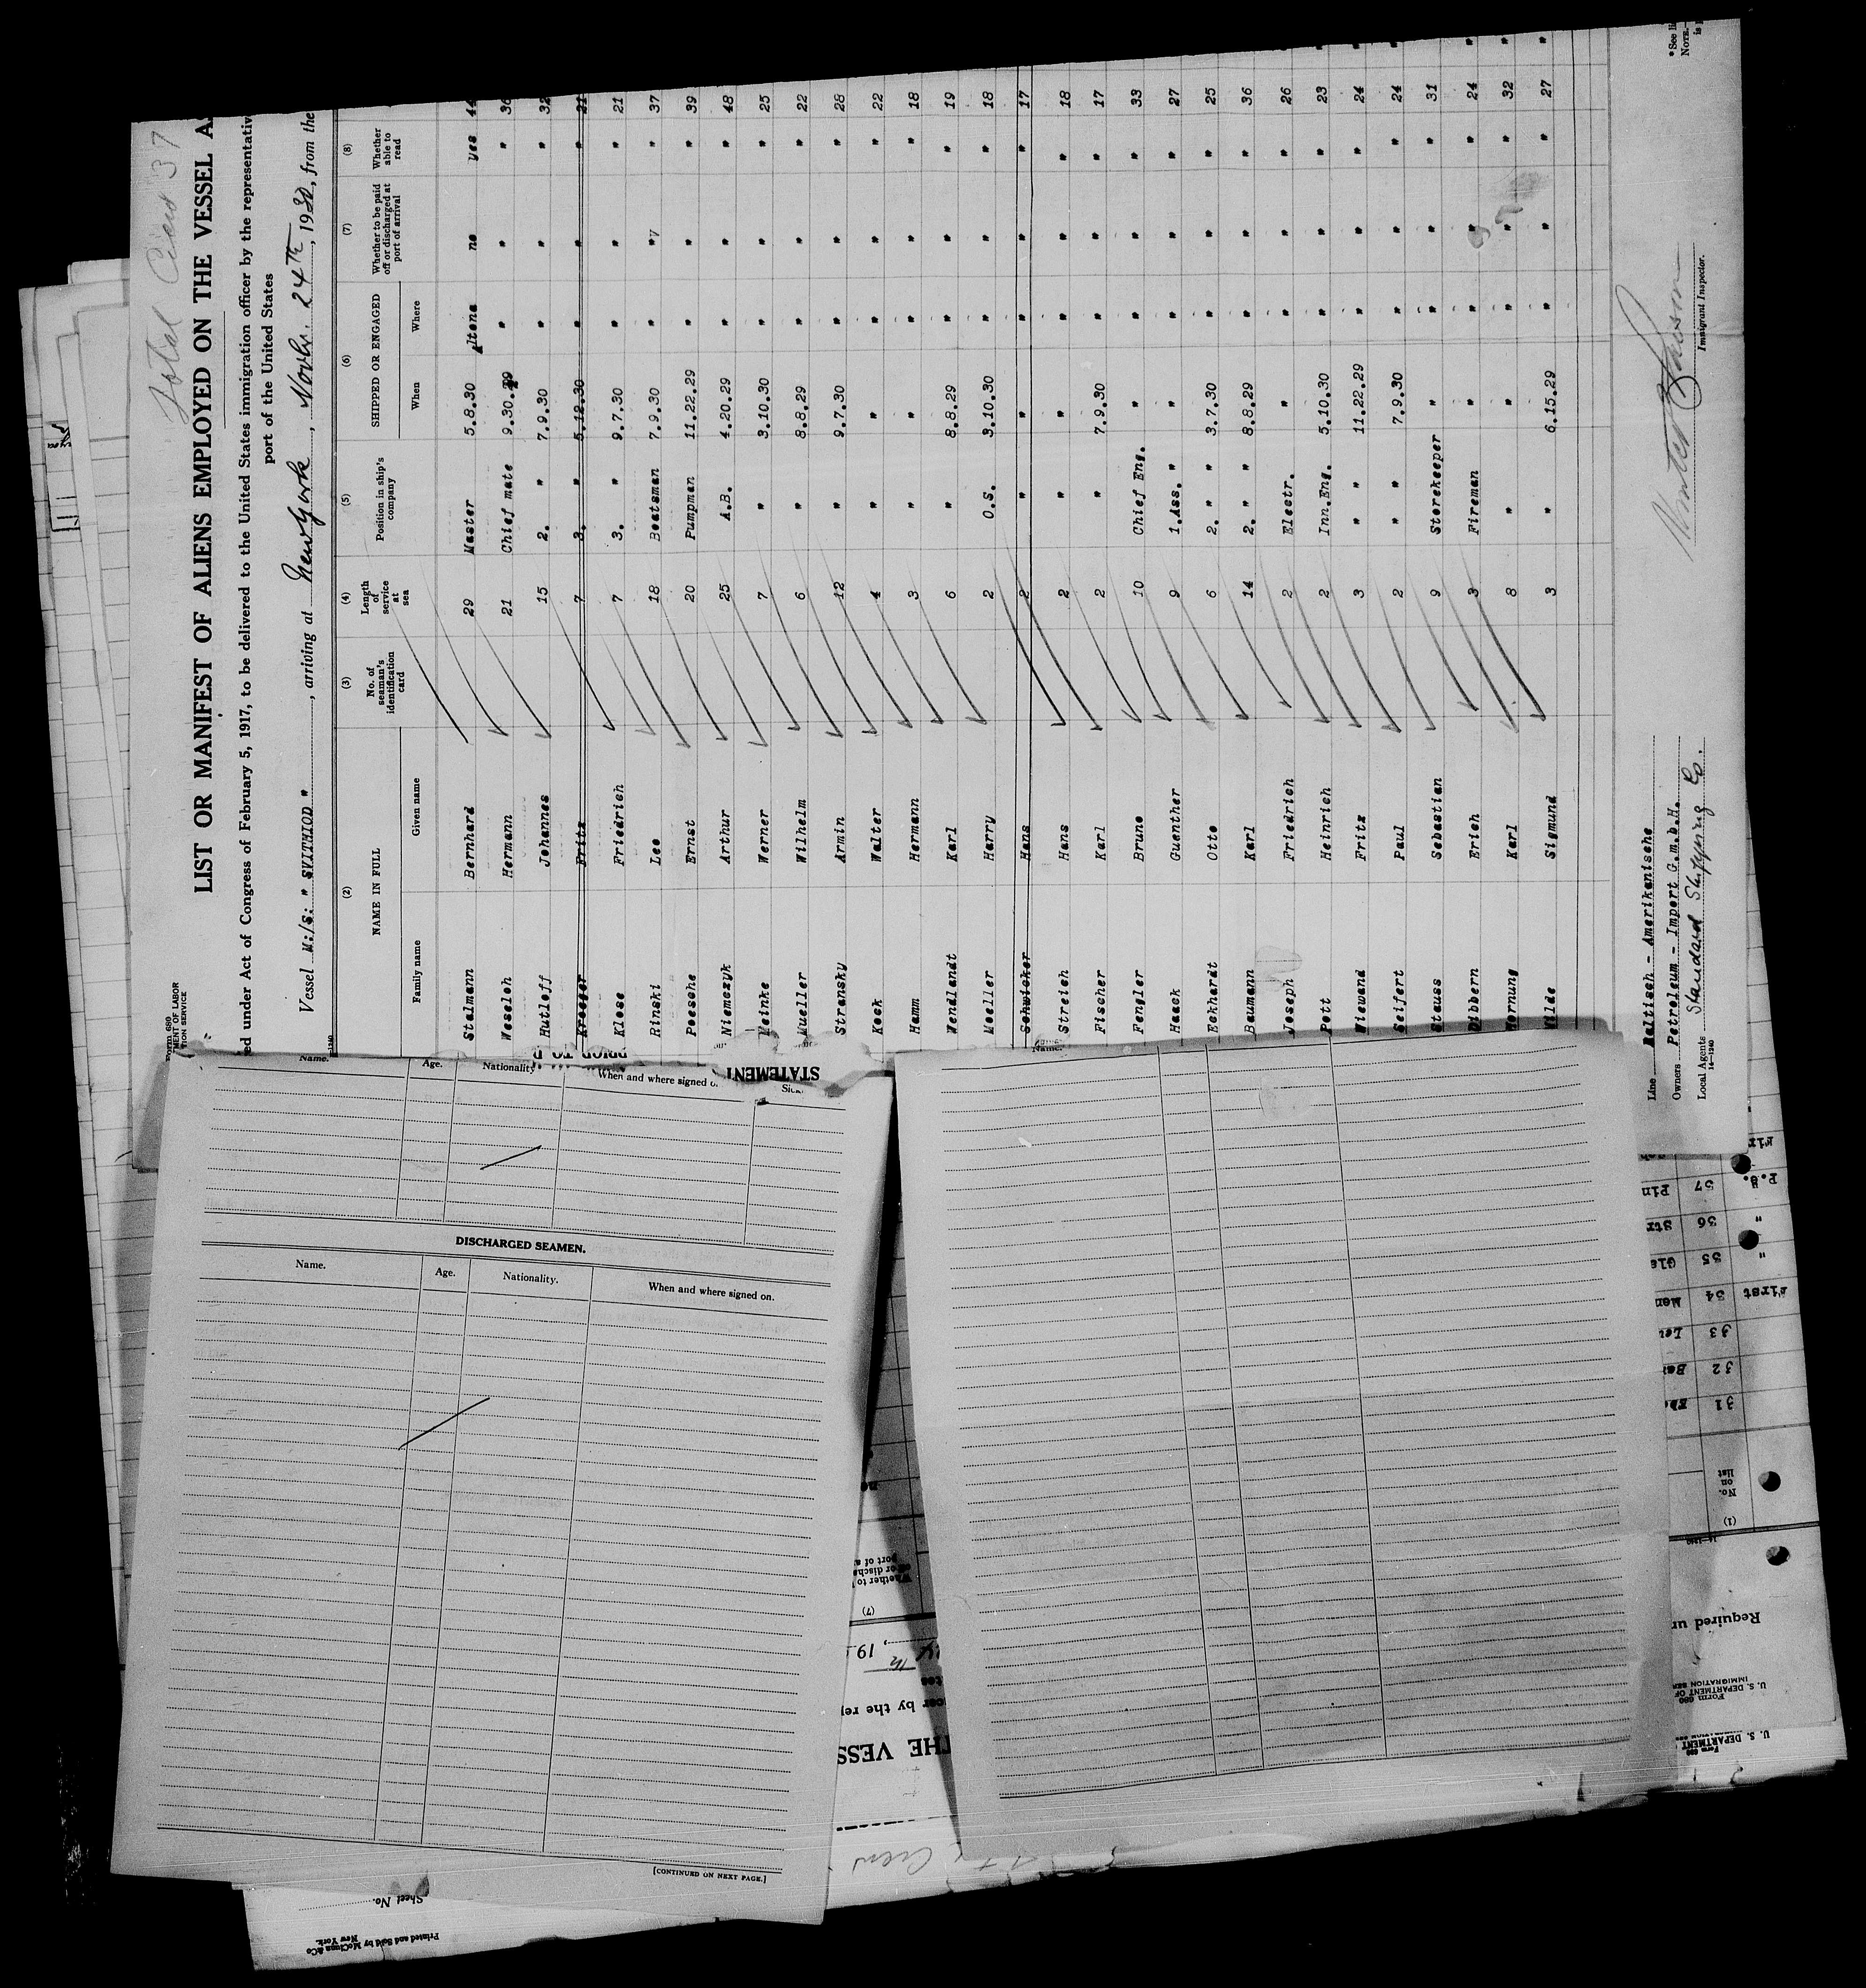 Total Crew 37
Form 680
MENT OF LABOR
TION SERVICE
LIST OR MANIFEST OF ALIENS EMPLOYED ON THE VESSEL A
ed under Act of Congress of February 5, 1917, to be delivered to the United States immigration officer by the representativ
port of the United States
Vessel M:/s: " SVITHIOD ", arriving at New York, Novbr. 24TH, 1930, from the
(2) (3) (4) (5) (6) (7) (8)
NAME IN FULL
Family name Given name
No. of seaman's identification card
Length of service at sea
Position in ship's company
SHIPPED OR ENGAGED
When Where
Whether to be paid off or discharged at port of arrival
Whether able to read
Stalmann Bernhard 29 Master 5.8.30 Altona no yes 44
Weseloh Hermann 21 Chief mate 9.30.29 " " " 36
Hutloff Johannes 15 2. " 7.9.30 " " " 32
Kroeger Fritz 7 3. " 5.12.30 " " " 21
Klose Friedrich 7 3. " 9.7.30 " " " 21
Rinski Leo 18 Boatsman 7.9.30 " " " 37
Poesche Ernst 20 Pumpman 11.22.29 " " " 39
Niemczyk Arthur 25 A.B. 4.20.29 " " " 48
Meinke Werner 7 " 3.10.30 " " " 25
Mueller Wilhelm 6 " 8.8.29 " " " 22
Stransky Armin 12 " 9.7.30 " " " 28
Kock Walter 4 " " " " " 22
Hamm Hermann 3 " " " " " 18
Wendlandt Karl 6 " 8.8.29 " " " 19
Moeller Harry 2 O.S. 3.10.30 " " " 18
Schwicker Hans 2 " " " " " 17
Streich Hans 2 " " " " " 18
Fischer Karl 2 " 7.9.30 " " " 17
Fengler Bruno 10 Chief Eng. " " " " 33
Haack Guenther 9 1.Ass. " " " " " 27
Eckhardt Otto 6 2. " " 3.7.30 " " " 25
Baumann Karl 14 2. " " 8.8.29 " " " 36
Joseph Friedrich 2 Electr. " " " " 26
Pott Heinrich 2 Inn.Eng. 5.10.30 " " " 23
Wiewand Fritz 3 " " 11.22.29 " " " 24 "
Seifert Paul 2 " " 7.9.30 " " " 24 "
Stauss Sebastian 9 Storekeeper " " " " 31
Dibbern Erich 3 Fireman " " " " 24 "
Hornung Karl 8 " " " " " 32 "
Wilde Sigmund 3 " 6.15.29 " " " 27 "
Line Baltisch - Amerikanische
Owners Petroleum - Import G.m.b.H.
Local Agents Standard Shipping Co.
14—1240
Immigrant Inspector.
*See li
NOTE.
is
STATEMENT
PRIOR TO
Name. Age. Nationality When and where signed o.
DISCHARGED SEAMEN.
Name. Age. Nationality. When and where signed on.
[CONTINUED ON NEXT PAGE.]
Name.
Sheet No.
Printed and Sold by McClung &Co
New York.
Whether to
or discha
port of a
(7)
, 19
cer by the rep
THE VESS
Crew
Fir
37 Pin P.O.
36 Str "
35 Gla "
34 Men First
33 Leu
32 Bar
31
No. on list
(1)
14—1240
Required un
Form 680
U. S. DEPARTMENT OF
IMMIGRATION SER
Form 680
U. S. DEPARTMENT